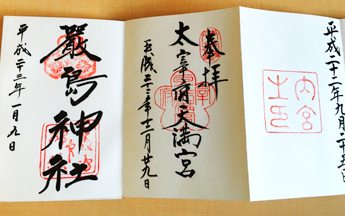 平成二十二年九月二十五日
内宮之印
奉拝
太宰府天満宮
平成二十二年十二月廿九日
嚴島神社
平成二十三年一月九日